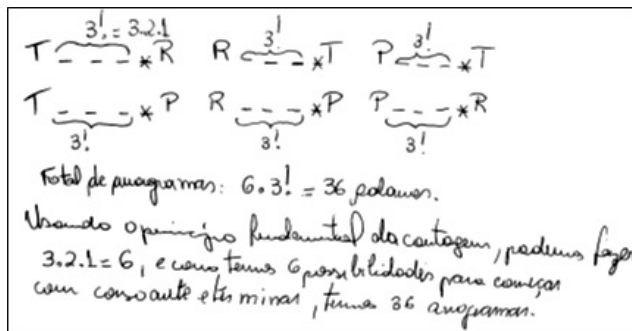 3! = 3.2.1 3! 3!
T _ _ _ * R R _ _ _ * T P _ _ _ * T
T _ _ _ * P R _ _ _ * P P _ _ _ * R
3! 3! 3!
Total de anagramas: 6.3! = 36 palavras.
Usando o princípio fundamental da contagem, podemos fazer
3.2.1 = 6, e como temos 6 possibilidades para começar
com consoante e terminar, temos 36 anagramas.